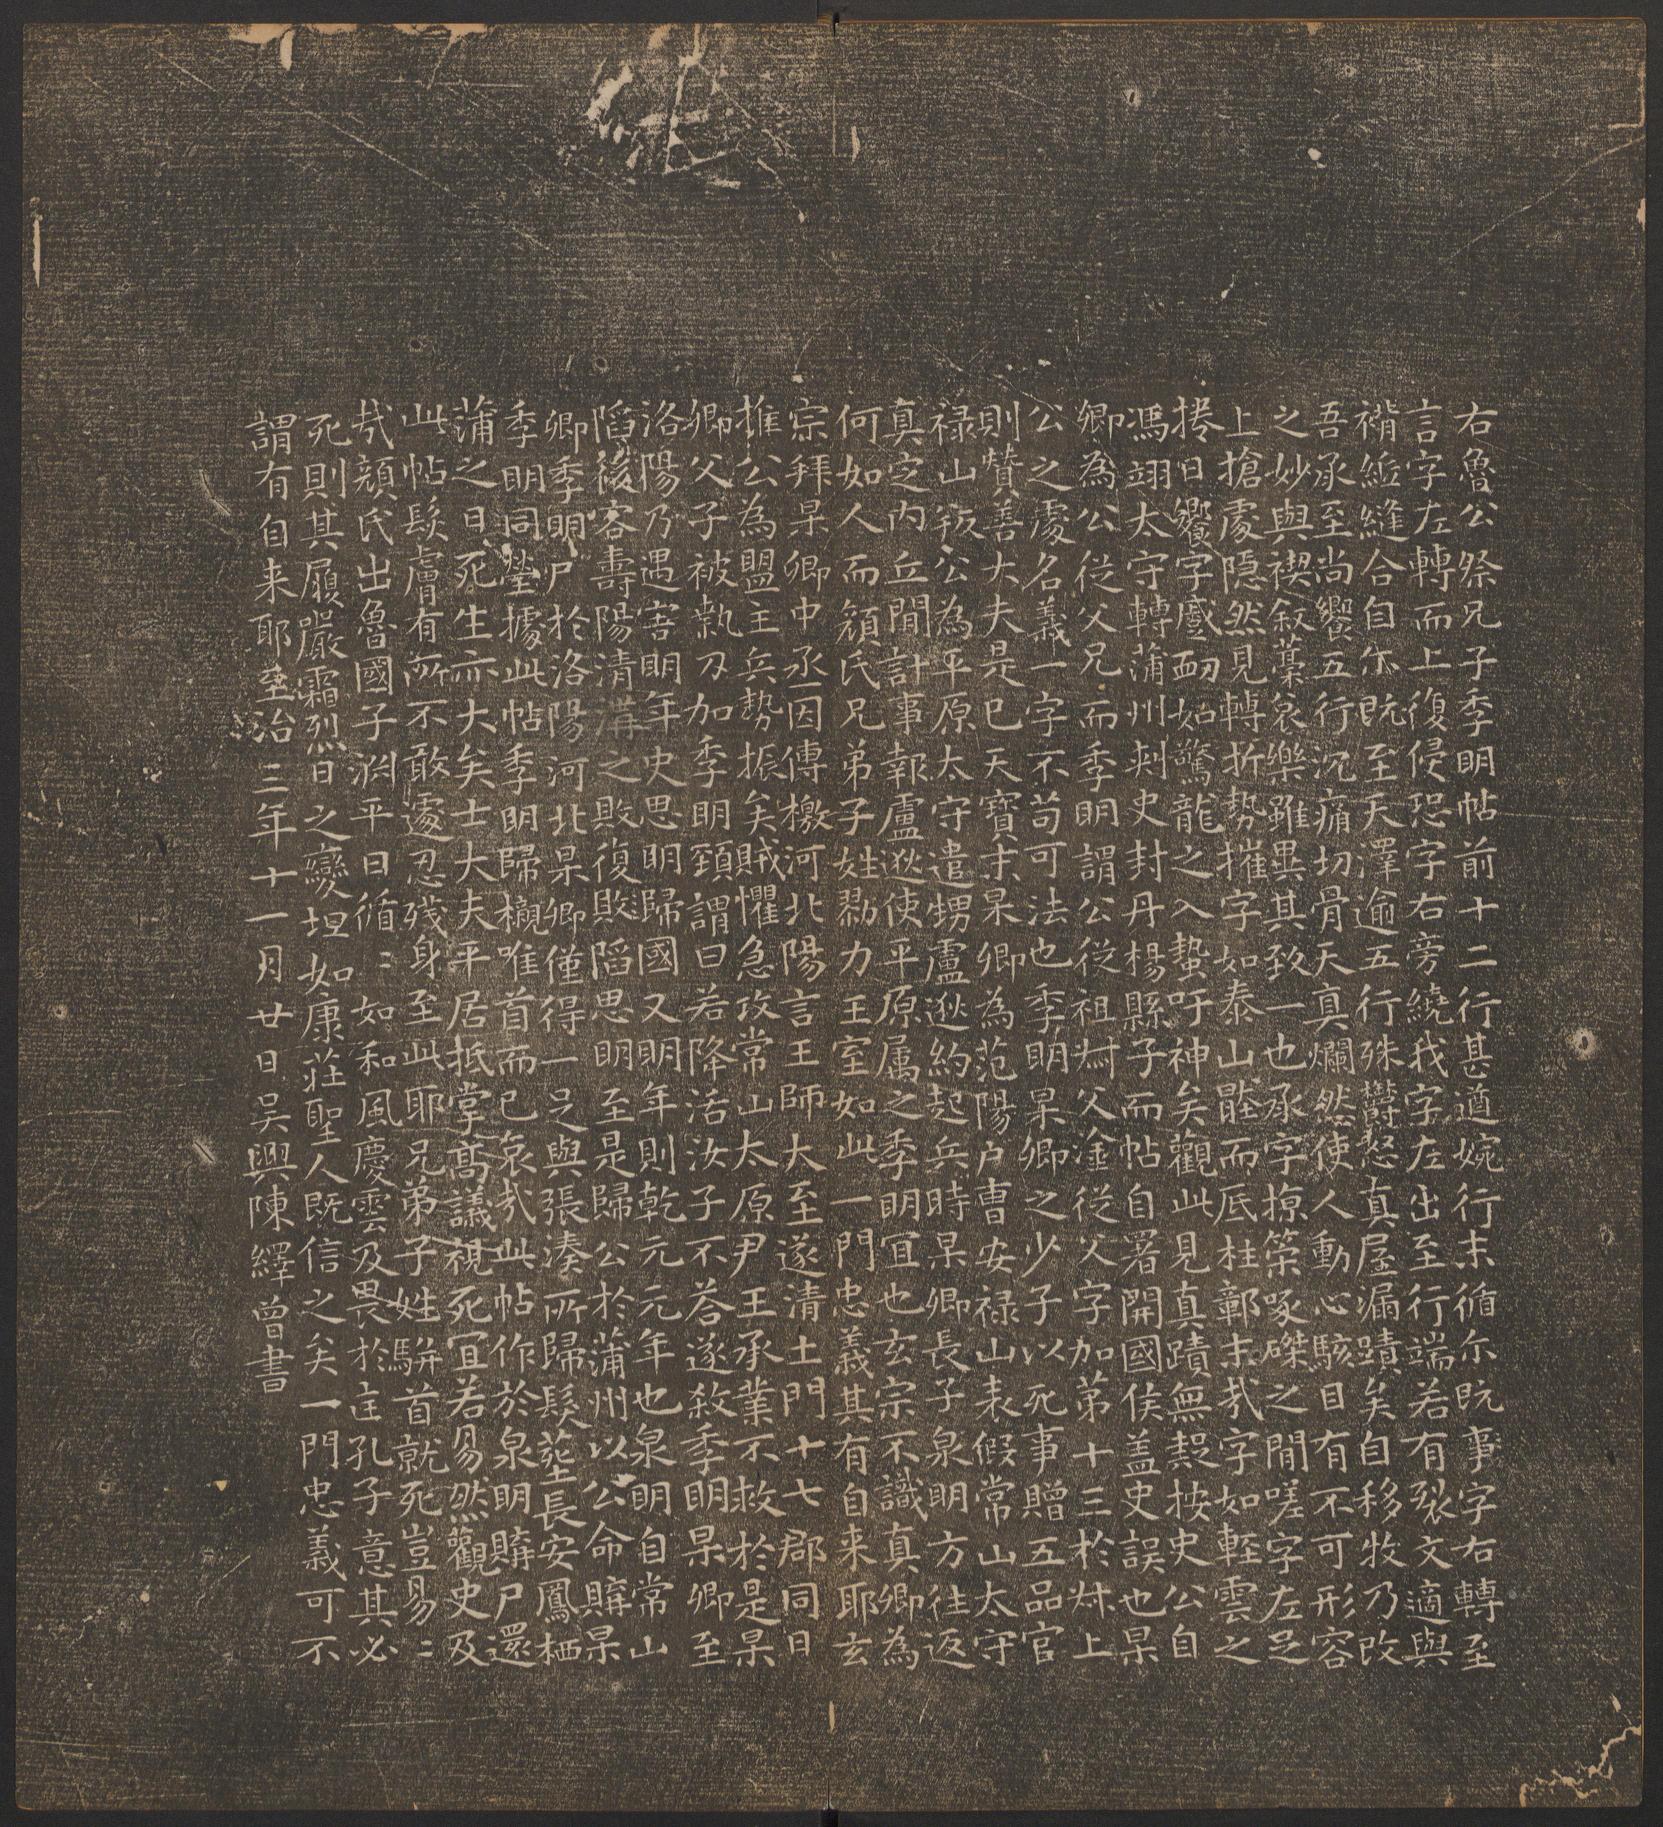 右魯公祭兄子季明帖前十二行甚遒婉行末循尓既事字右轉至
言字左轉而上復侵恐字右旁繞我字左出至行端若有裂文適與
褙紙縫合自尓既至天澤逾五行殊鬱怒真屋漏蹟矣自移牧乃改
吾承至尚饗五行沉痛切骨天真爛然使人動心駭目有不可形容
之妙與禊叙藁哀樂雖異其致一也承字掠策啄磔之間嗟字左足
上搶處隱然見轉折勢摧字如泰山壓而底柱鄣末哉字如輕雲之
捲日饗字蹙衂如驚龍之入蟄吁神矣觀此見真蹟無疑按史公自
馮翊太守轉蒲州刺史封丹楊縣子而帖自署開國侯盖史誤也杲
卿為公從父兄而季明謂公從祖尗父淦從父字加第十三於尗上
公之處名義一字不苟可法也季明杲卿之少子以死事贈五品官
則贊善大夫是已天寶末杲卿為范陽户曹安禄山表假常山太守
禄山叛公為平原太守遣甥盧逖約起兵時杲卿長子泉明方往返
真定内丘間計事報盧逖使平原属之季明冝也玄宗不識真卿為
何如人而顔氏兄弟子姓勠力王室如此一門忠義其有自来耶玄
宗拜杲卿中丞因傳檄河北陽言王師大至遂清土門十七郡同日
推公為盟主兵勢振矣賊懼急攻常山太原尹王承業不救於是杲
卿父子被執刃加季明頚謂曰若降活汝子不荅遂殺季明杲卿至
洛陽乃遇害明年史思明歸國又明年則乾元元年也泉明自常山
䧟後客壽陽清溝之敗復敗䧟思明至是歸公於蒲州以公命購杲
卿季明尸於洛陽河北杲卿僅得一足與張湊所歸髮塟長安鳳栖
季明同塋據此帖季明歸櫬唯首而已哀哉此帖作於泉明購尸還
蒲之日死生亦大矣士大夫平居抵掌高議視死宜若易然觀史及
此帖髮膚有所不敢遽忍殘身至此耶兄弟子姓駢首就死豈易〻
哉顔氏出魯國子渊平日循〻如和風慶雲及畏於匡孔子意其必
死則其履嚴霜烈日之變坦如康莊聖人既信之矣一門忠義可不
謂有自来耶至治三年十一月廿日吴興陳繹曽書